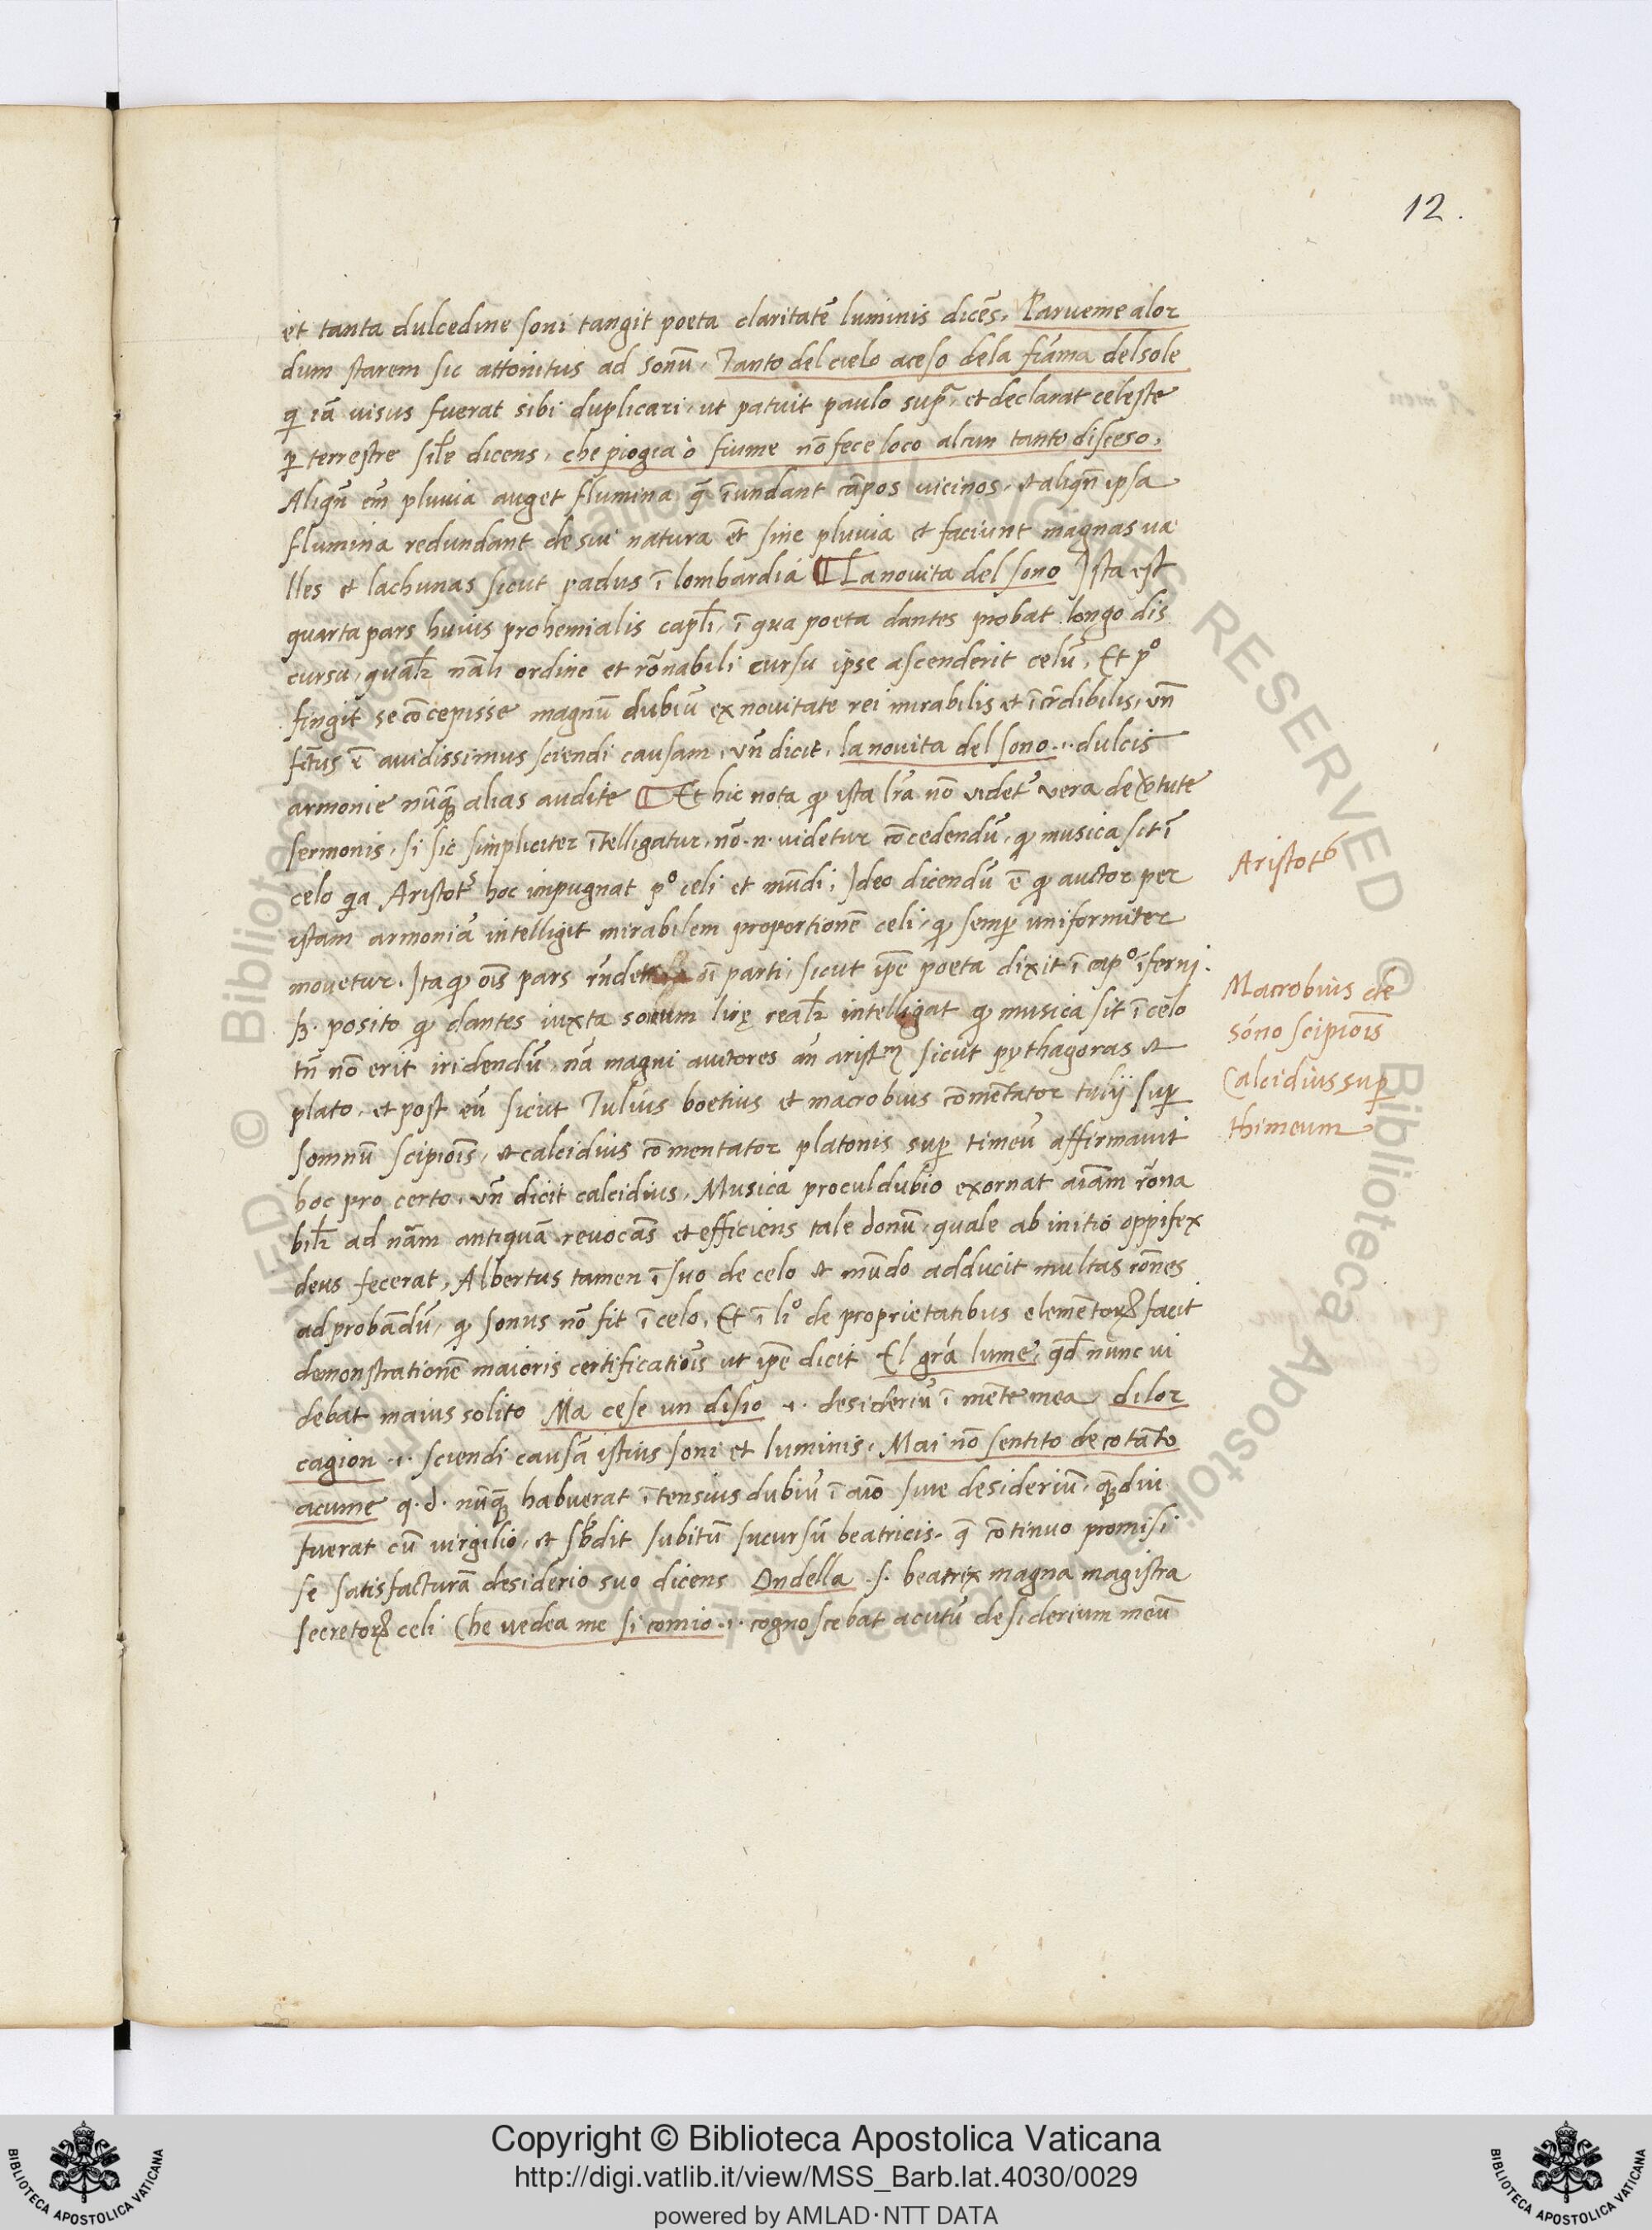 12.
et tanta dulcedine soni tangit poeta claritatē luminis dicēs, Parueme alor
dum starem sic attonitus ad sonū, Tanto del cielo aceso dela fiāma del sole
q iā visus fuerat sibi duplicari, ut patuit paulo supᵃ, et declarat celeste
p terrestre sile dicens, che piogia ò fiume nō fece loco alcun tanto disceso,
Aliqn̄ em̄ pluvia auget flumina q̄ īundant cāpos vicinos, et aliqn̄ ipsa
flumina redundant de sui natura et̄ sine pluvia et faciunt magnas va
lles et lachunas sicut padus ī lombardia ¶ La novita del sono Ista est
quarta pars huius prohemialis capl̄i, ī qua poeta dantes probat longo dis
cursu, qualr̄ nāli ordine et rōnabili cursu ipse ascenderit celū, Et pº
fingit se cōcepisse magnū dubiū ex novitate rei mirabilis et īcrdibilis, vn̄
fctus ē avidissimus sciendi causam, vn̄ dicit, la novita del sono .i. dulcis
armonie nūq̄ alias audite ¶ Et hic nota qͥ ista lr̄a nō videt͛ vera de vtute
sermonis, si sic simpliciter ītelligatur, nō .n. videtur cōcedendū, qͥ musica sit ī
celo qa Aristotˢ hoc inpugnat pº celi et mūdi, Ideo dicendū ē qͥ auctor per
istam armoniā intelligit mirabilem proportionē celi, qͥ semp uniformiter
movetur. Ita qͥ oīs pars rn̄det oī parti, sicut ipē poeta dixit ī capº īferni.
posito qͥ dantes iuxta sonum lirę realr̄ intelligat qͥ musica sit ī celo
tn̄ nō erit iridendū, nā magni auctores an̄ aristᵐ sicut pythagoras et
plato, et post eū sicut Tulius boetius et macrobius cōmētator tulij sup
somnū scipiois, et calcidius cōmentator platonis sup timeū affirmavit
hoc pro certo, vn̄ dicit calcidius, Musica proculdubio exornat aīam rōna
bilr̄ ad nām antiquā revocās et efficiens tale donū, quale ab initio oppifex
deus fecerat, Albertus tamen ī suo de celo et mūdo adducit multas rōnes
ad probādū, qͥ sonus nō fit ī celo, Et ī liº de proprietatibus elementoꝝ facit
demonstrationē maioris certificatiōis ut ipē dicit El grā lume, qd̄ nunc vi
debat maius solito Ma cese un disio .i. desideriū ī mēte mea, di lor
cagion .i. sciendi causā istius soni et luminis, Mai nō sentito de cotāto
acume q.d. nūq̄ habuerat ītensius dubiū ī aīo sive desideriū, q̄diu
fuerat cū virgilio, et sbdit subitū sucursū beatricis, q̄ cōtinuo promisi
se satisfacturā desiderio suo dicens Ondella .s. beatrix magna magistra
secretoꝝ celi Che vedea me si comio .i. cognoscebat acutū desiderium meū
Aristotᵇ
Macrobius de
sóno scipiois
Calcidius sup
thimeum
Copyright © Biblioteca Apostolica Vaticana
http://digi.vatlib.it/view/MSS_Barb.lat.4030/0029
powered by AMLAD·NTT DATA
BIBLIOTECA APOSTOLICA VATICANA
BIBLIOTECA APOSTOLICA VATICANA